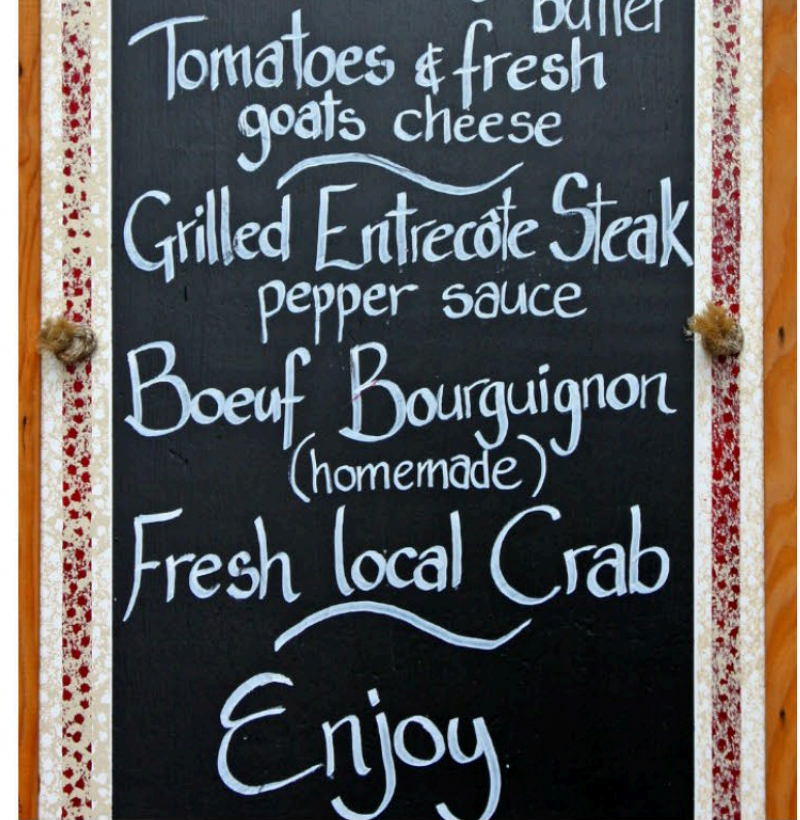 butter
Tomatoes & fresh
goats cheese
Grilled Entrecôte Steak
pepper sauce
Boeuf Bourguignon
(homemade)
Fresh local Crab
Enjoy